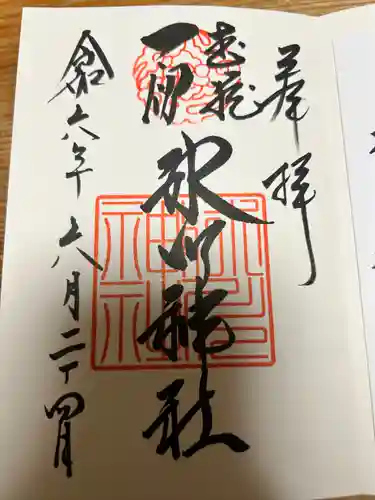 奉拝
武蔵
一宮
氷川神社
令和六年六月二十四日